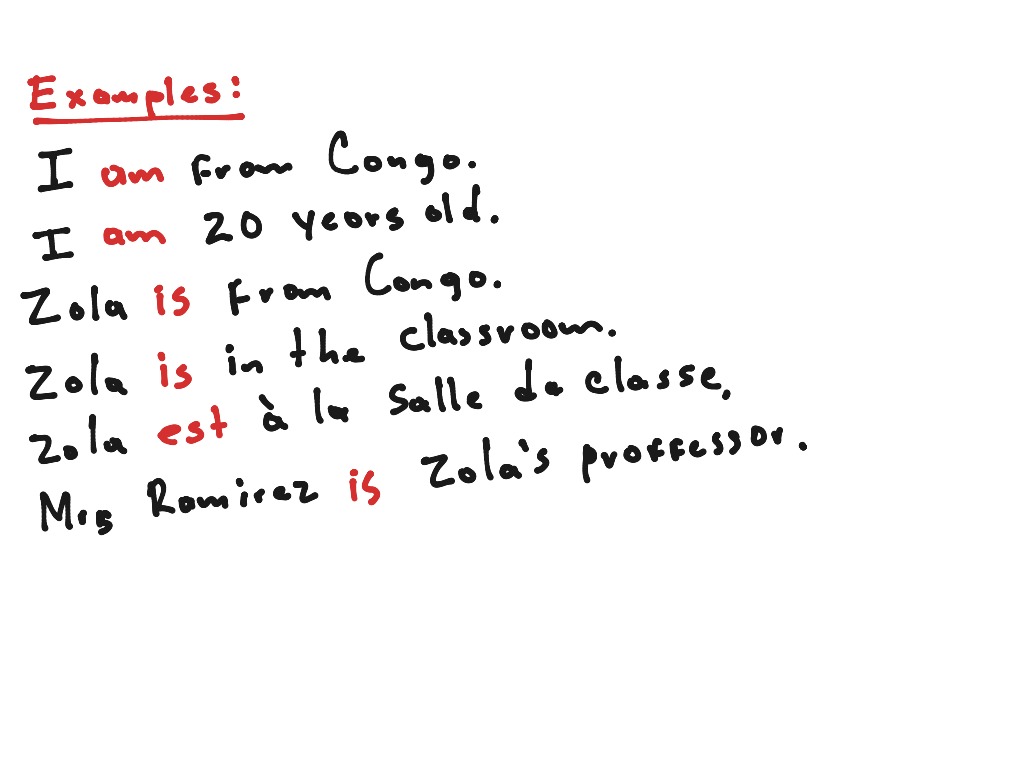 Examples:
I am from Congo.
I am 20 years old.
Zola is from Congo.
Zola is in the classroom.
Zola est à la Salle de classe.
Mrs Ramirez is Zola's proffessor.